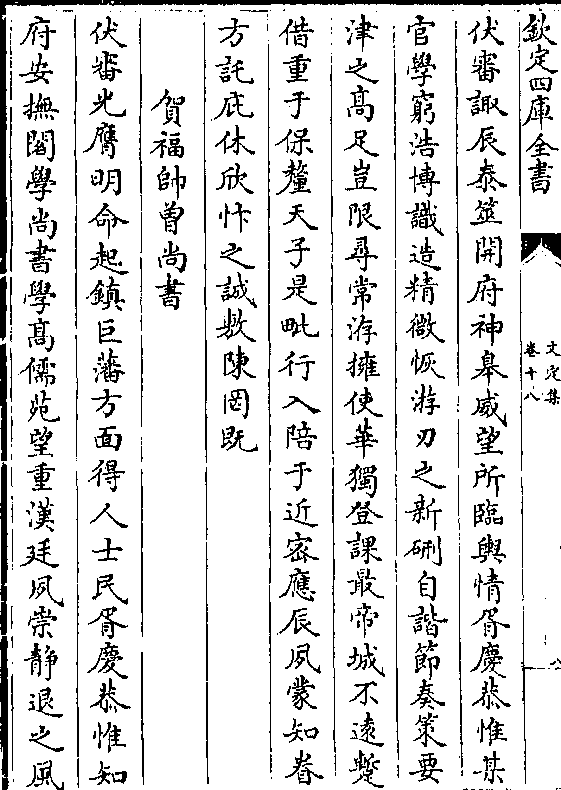 欽定四庫全書
文定集
卷十八
伏審諏辰泰筮開府神臯威望所臨輿情胥慶恭惟某
官學窮浩博識造精微恢游刃之新硎自諧節奏策要
津之高足豈限尋常洊擁使華獨登課最帝城不遠蹔
借重于保釐天子是毗行入陪于近密應辰夙蒙知眷
方託庇休欣忭之誠敷陳罔既
賀福帥曾尚書
伏審光膺明命起鎮巨藩方面得人士民胥慶恭惟知
府安撫閣學尚書學高儒苑望重漢廷夙崇靜退之風